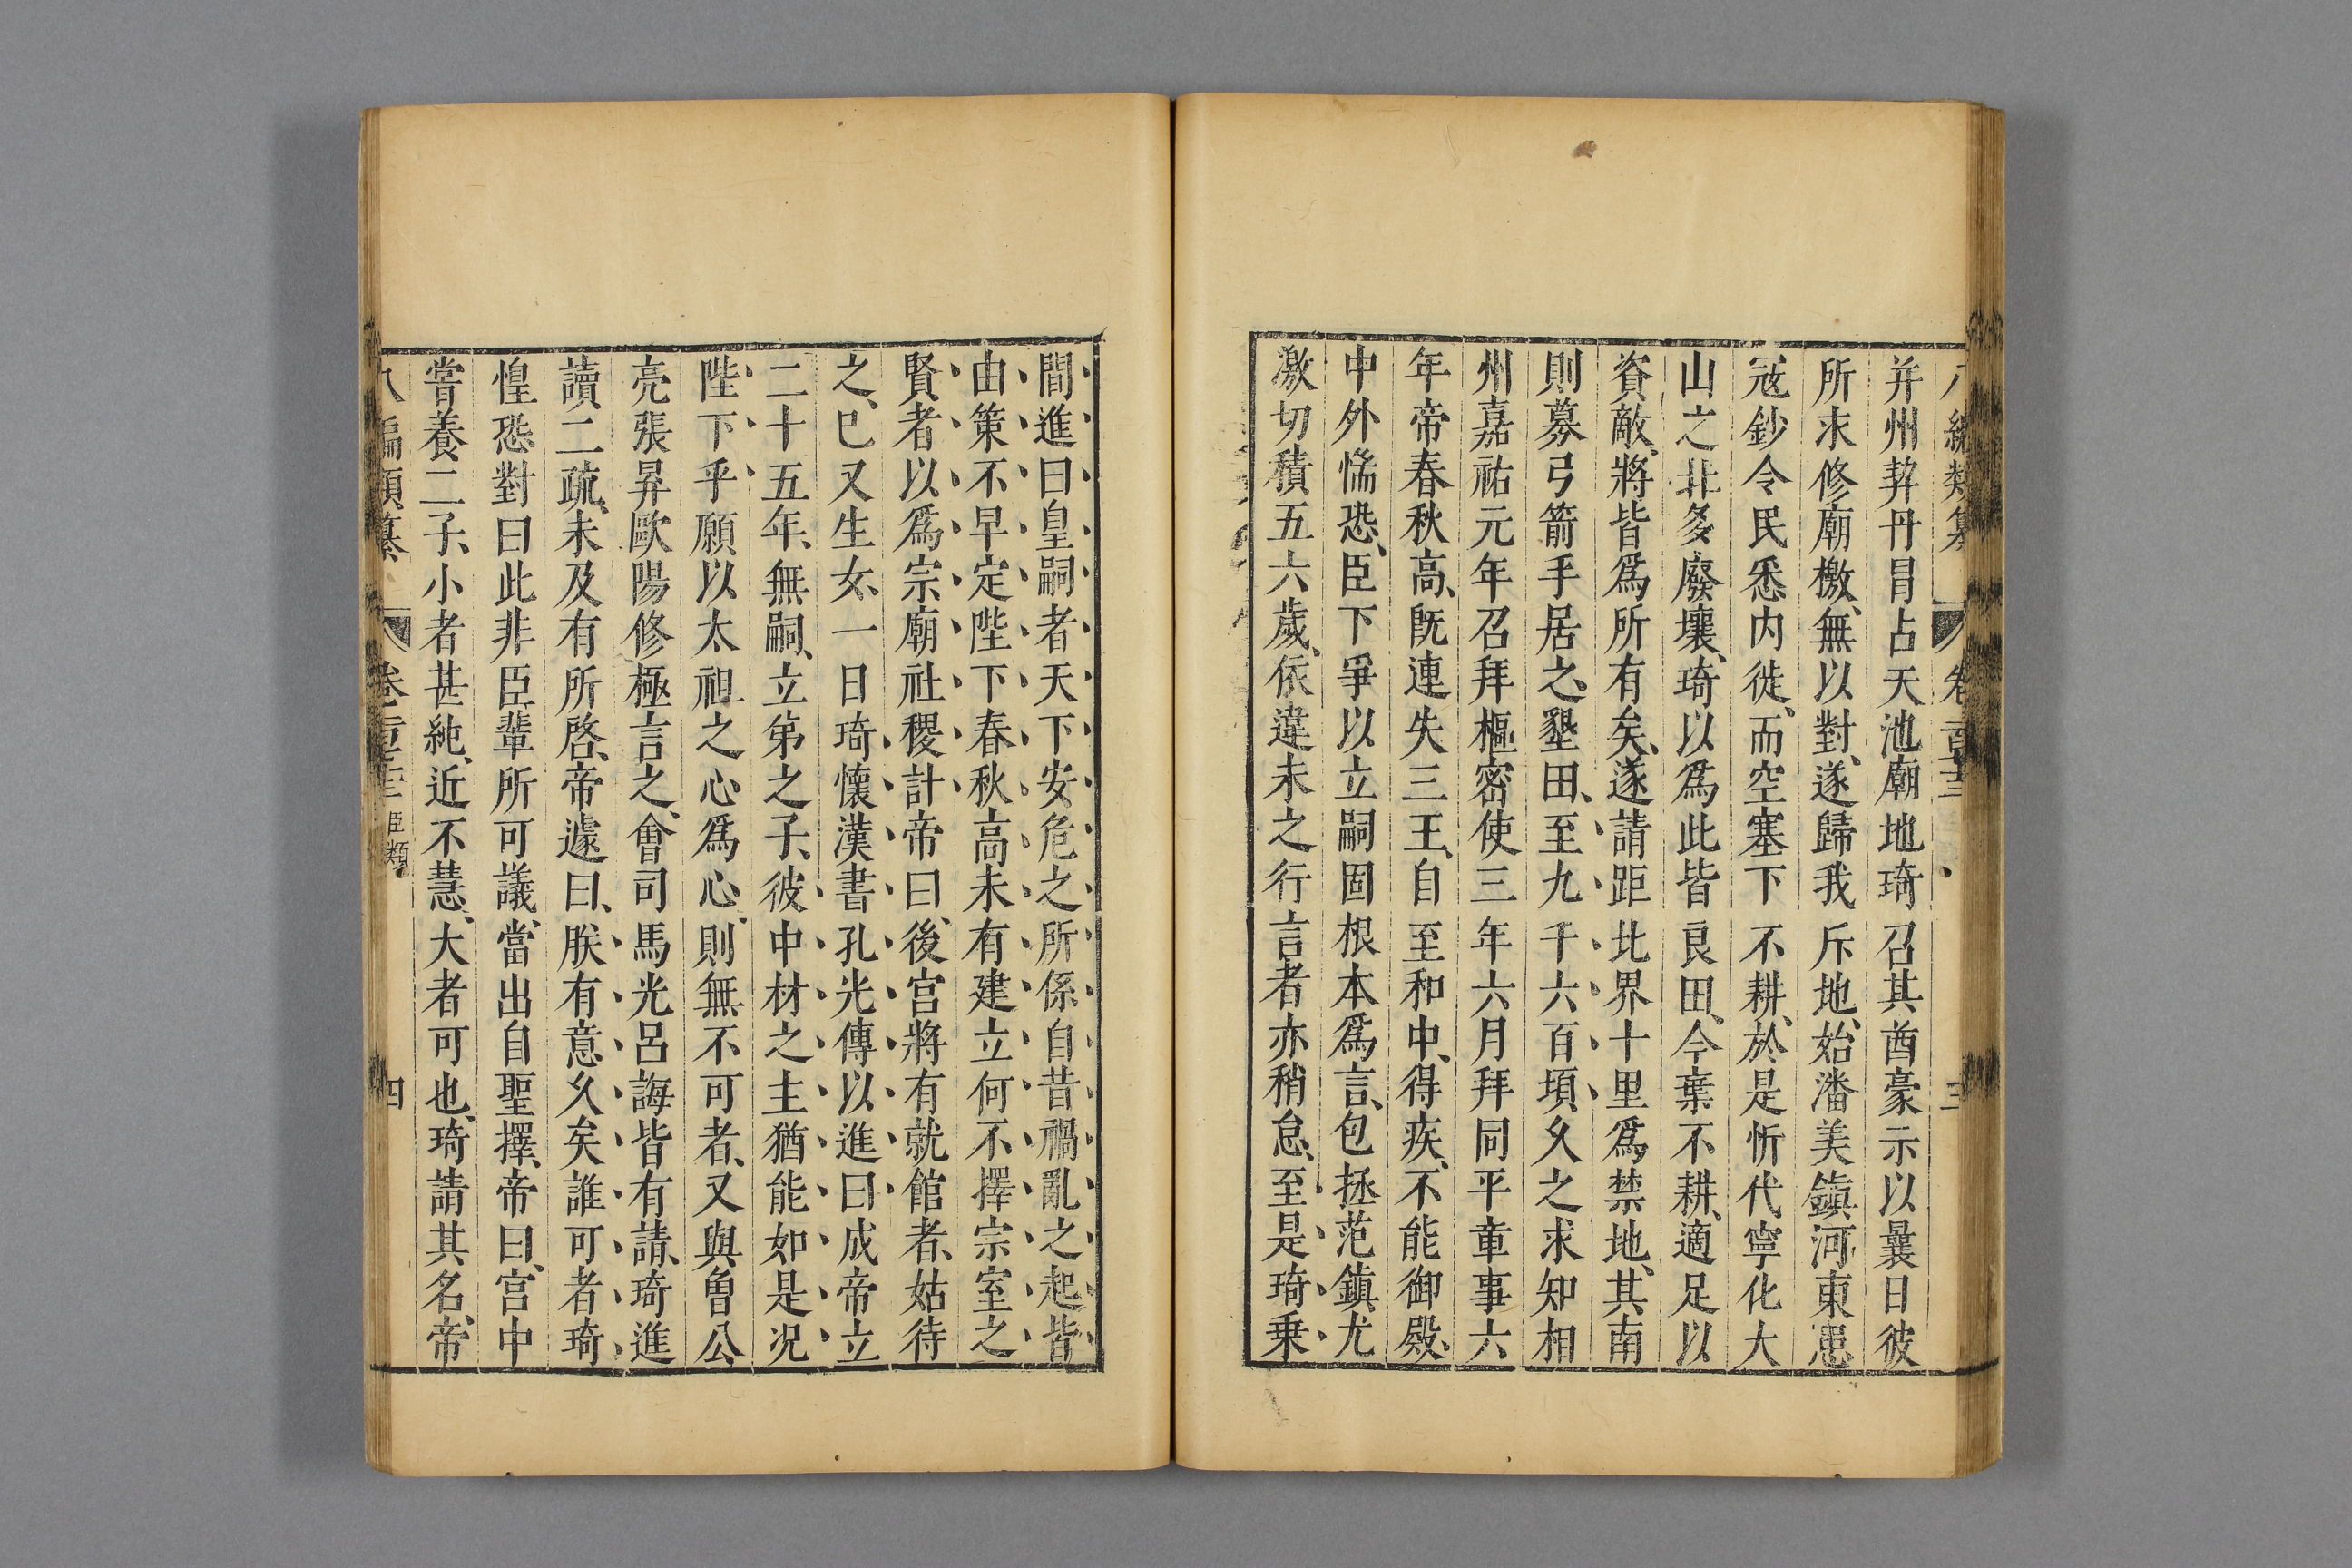 并州契丹冒占天池廟地琦召其酋豪示以曩日彼
所求修廟檄無以對遂歸我斥地始潘美鎮河東患
冦鈔令民悉内徙而空塞下不耕於是忻代寧化大
山之北多廢壤琦以爲此皆良田今棄不耕適足以
資敵將皆爲所有矣遂請距北界十里爲禁地其南
則募弓箭手居之墾田至九千六百頃久之求知相
州嘉祐元年召拜樞密使三年六月拜同平章事六
年帝春秋高旣連失三王自至和中得疾不能御殿
中外惴恐臣下爭以立嗣固根本爲言包拯范鎮尤
激切積五六歲依違未之行言者亦稍怠至是琦乗
間進曰皇嗣者天下安危之所係自昔禍亂之起皆
由策不早定陛下春秋高未有建立何不擇宗室之
賢者以爲宗廟社稷計帝曰後宫將有就館者姑待
之已又生女一日琦懷漢書孔光傳以進曰成帝立
二十五年無嗣立弟之子彼中材之主猶能如是况
陛下乎願以太祖之心爲心則無不可者又與魯公
亮張昇歐陽修極言之會司馬光呂誨皆有請琦進
讀二疏未及有所啓帝遽曰朕有意久矣誰可者琦
惶恐對曰此非臣輩所可議當出自聖擇帝曰宫中
嘗養二子小者甚純近不慧大者可也琦請其名帝
八編類纂 卷 臣類 四